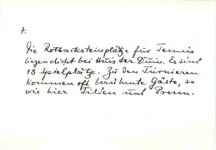 7.
Die Rotbacksteinplätze für Tennis
liegen dicht bei Huis ter Duin. Es sind
18 Spielplätze. Zu den Turnieren
kommen oft berühmte Gäste, so
wie hier Tilden und Prenn.